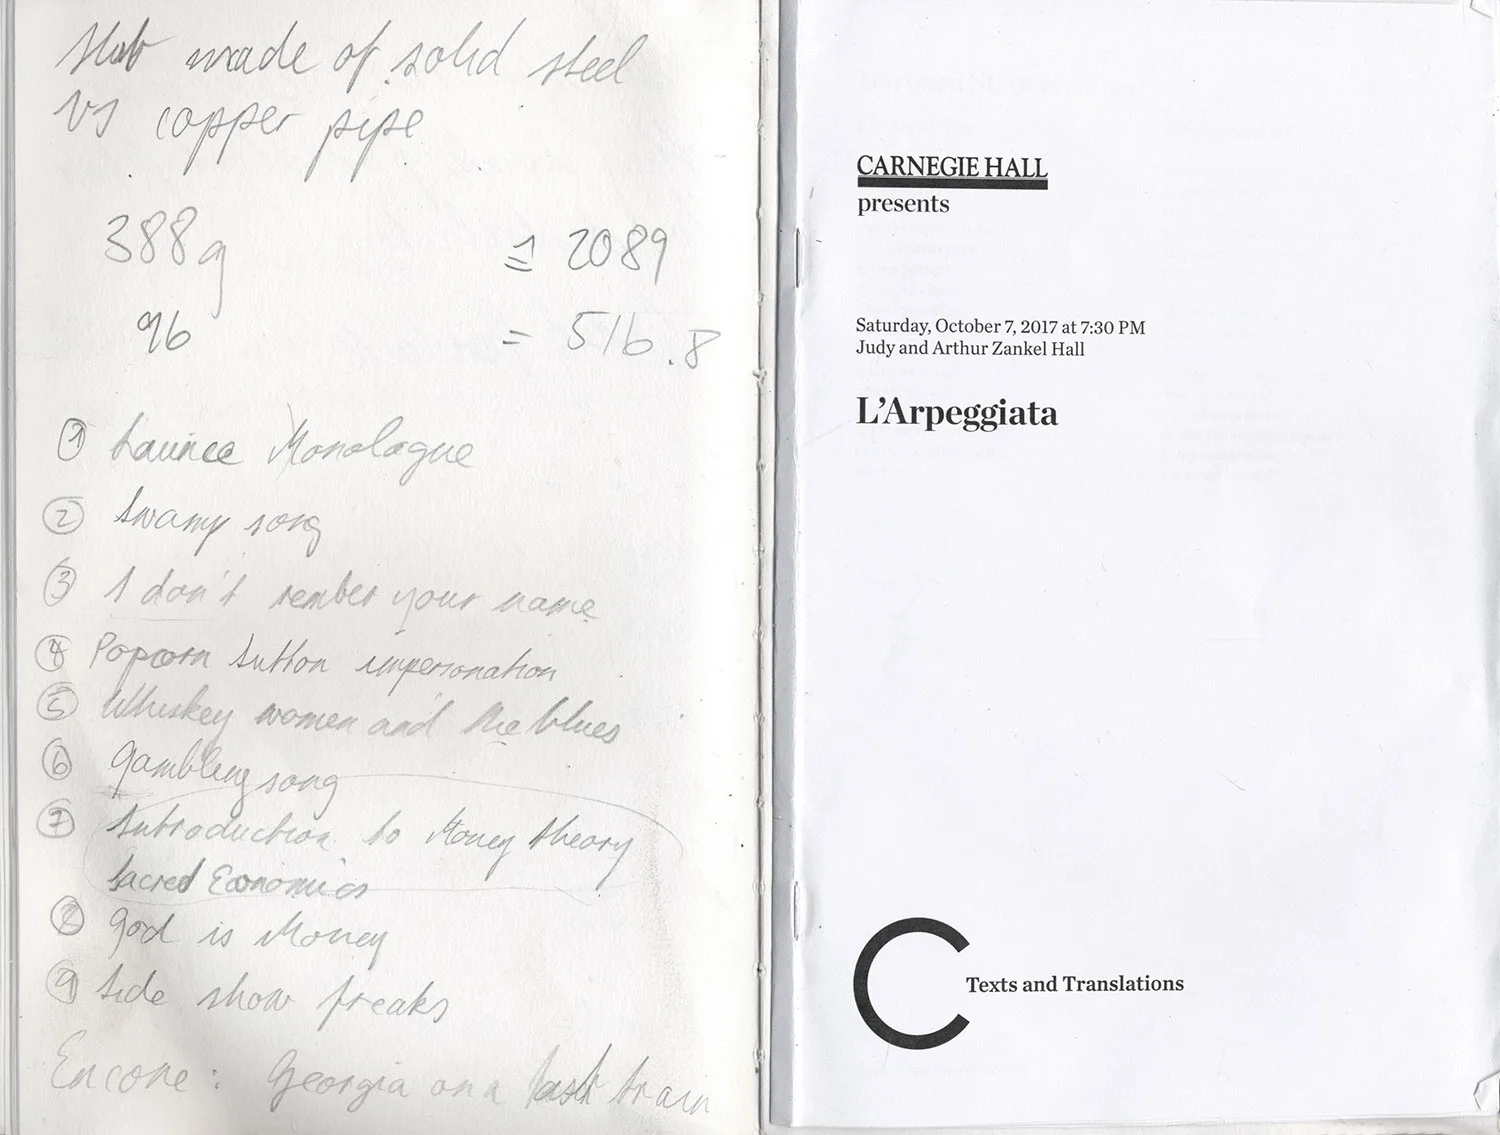 made of solid steel
vs copper pipe
388g = 2089
96 = 516.8
① Launce Monologue
② Swamp song
③ I don't rember your name
④ Popcorn Sutton impersonation
⑤ Whiskey women and the blues
⑥ Gambling song
⑦ Introduction to Money theory
Sacred Economics
⑧ God is Money
⑨ Side show freaks
Encore: Georgia on a fast train
CARNEGIE HALL
presents
Saturday, October 7, 2017 at 7:30 PM
Judy and Arthur Zankel Hall
L'Arpeggiata
Texts and Translations